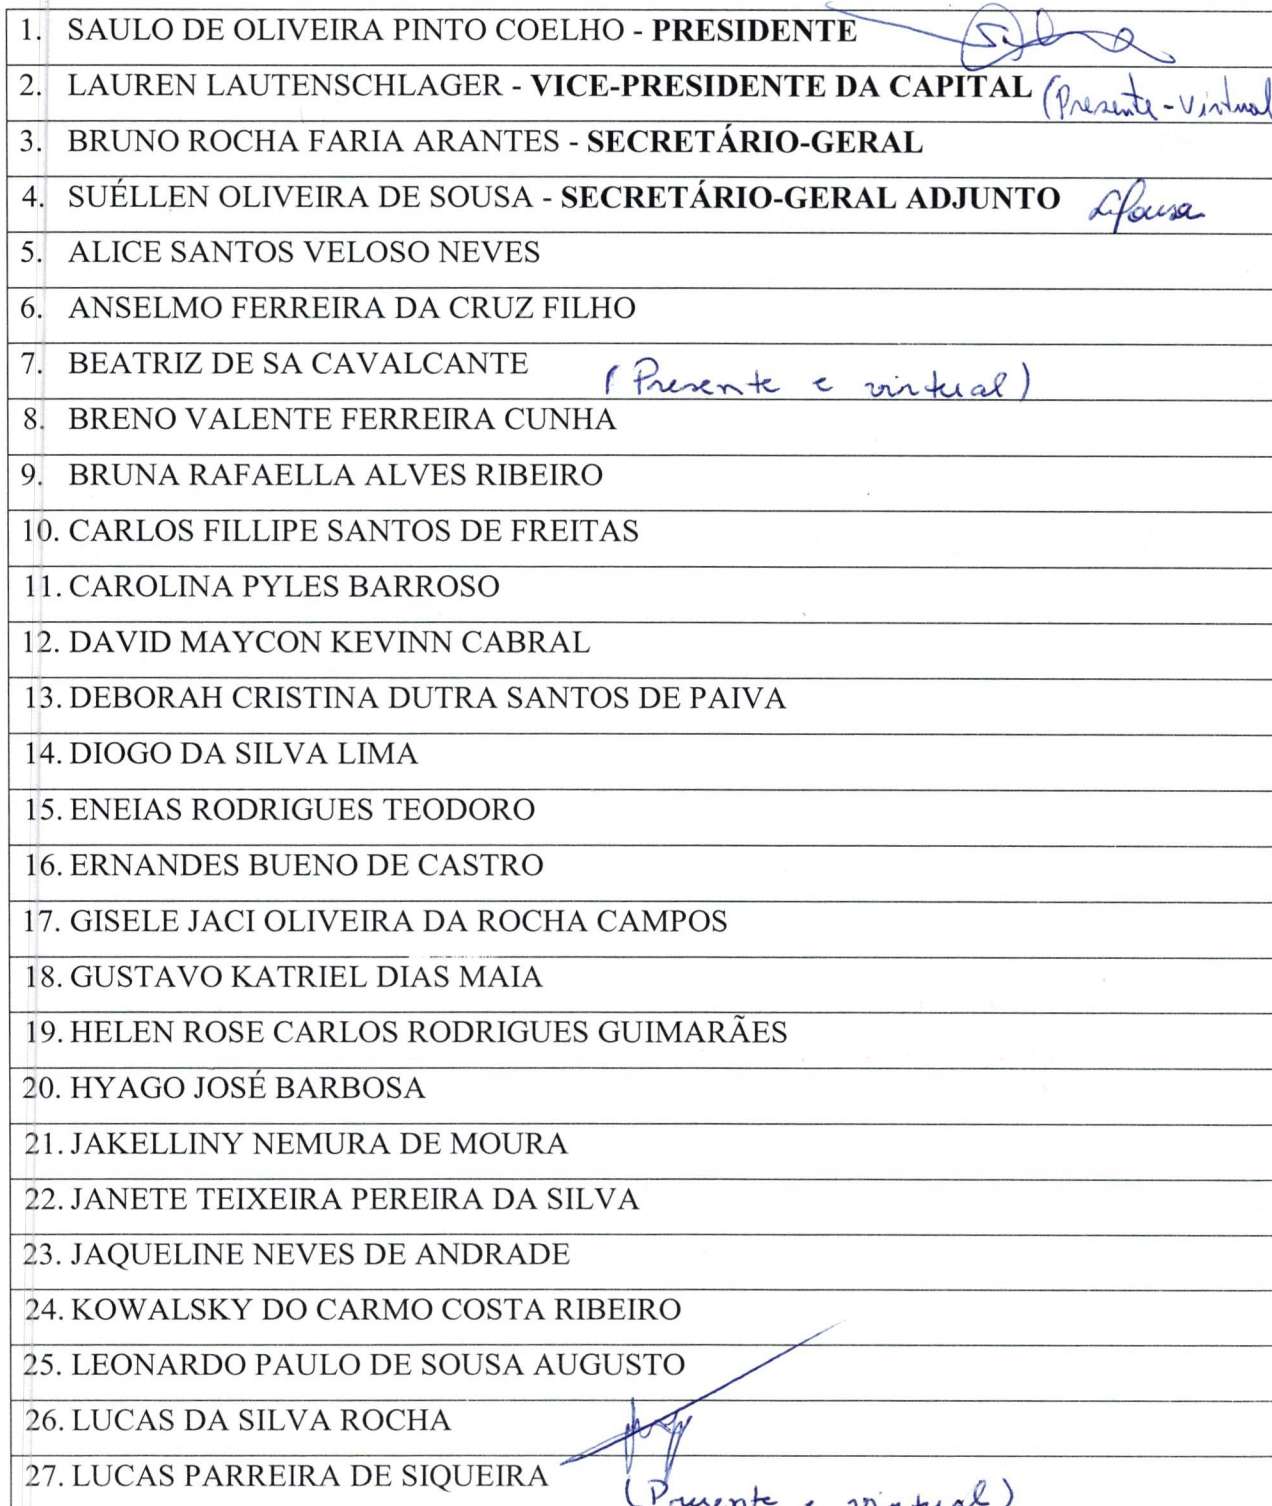 1. SAULO DE OLIVEIRA PINTO COELHO - PRESIDENTE
2. LAUREN LAUTENSCHLAGER - VICE-PRESIDENTE DA CAPITAL (Presente - Virtual
3. BRUNO ROCHA FARIA ARANTES - SECRETÁRIO-GERAL
4. SUÉLLEN OLIVEIRA DE SOUSA - SECRETÁRIO-GERAL ADJUNTO
5. ALICE SANTOS VELOSO NEVES
6. ANSELMO FERREIRA DA CRUZ FILHO
7. BEATRIZ DE SA CAVALCANTE (Presente e virtual)
8. BRENO VALENTE FERREIRA CUNHA
9. BRUNA RAFAELLA ALVES RIBEIRO
10. CARLOS FILLIPE SANTOS DE FREITAS
11. CAROLINA PYLES BARROSO
12. DAVID MAYCON KEVINN CABRAL
13. DEBORAH CRISTINA DUTRA SANTOS DE PAIVA
14. DIOGO DA SILVA LIMA
15. ENEIAS RODRIGUES TEODORO
16. ERNANDES BUENO DE CASTRO
17. GISELE JACI OLIVEIRA DA ROCHA CAMPOS
18. GUSTAVO KATRIEL DIAS MAIA
19. HELEN ROSE CARLOS RODRIGUES GUIMARÃES
20. HYAGO JOSÉ BARBOSA
21. JAKELLINY NEMURA DE MOURA
22. JANETE TEIXEIRA PEREIRA DA SILVA
23. JAQUELINE NEVES DE ANDRADE
24. KOWALSKY DO CARMO COSTA RIBEIRO
25. LEONARDO PAULO DE SOUSA AUGUSTO
26. LUCAS DA SILVA ROCHA
27. LUCAS PARREIRA DE SIQUEIRA (Presente e virtual)